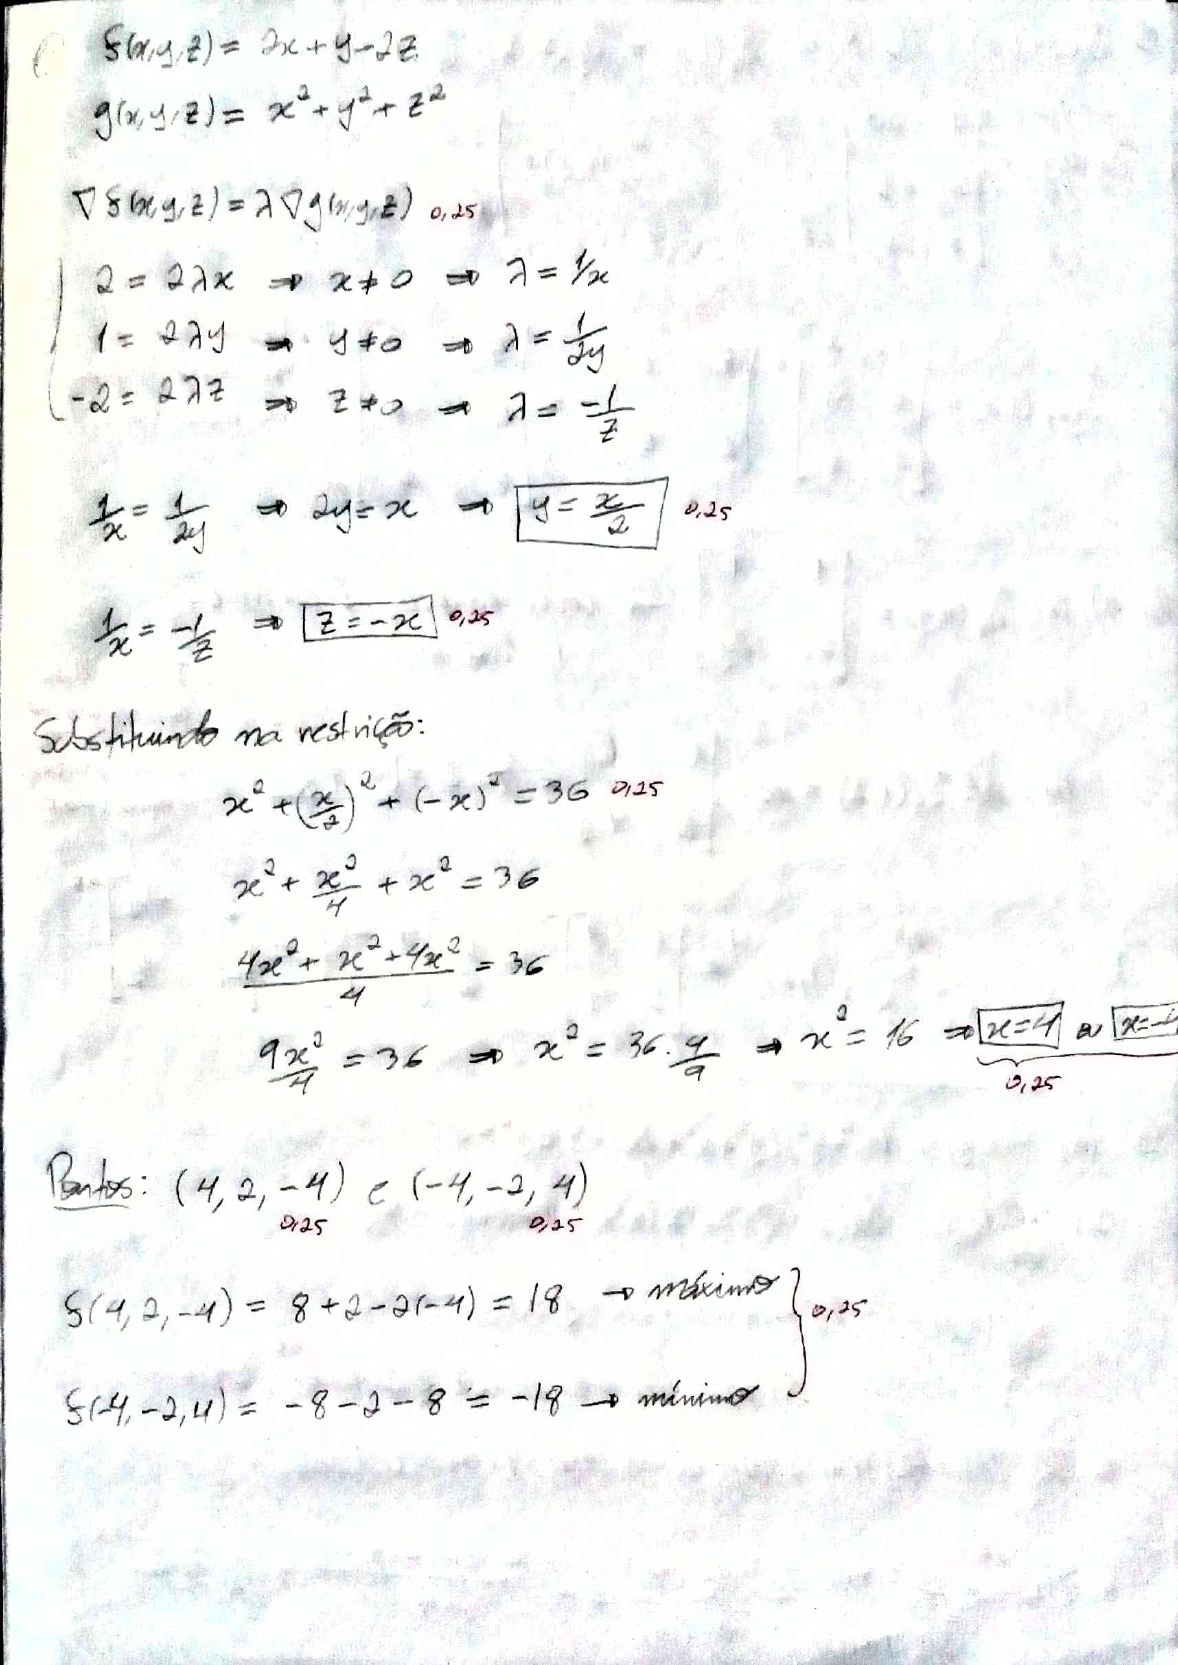 f(x,y,z) = 2x + y - 2z
g(x,y,z) = x² + y² + z²
∇f(x,y,z) = λ∇g(x,y,z) 0,25
2 = 2λx ⇒ x ≠ 0 ⇒ λ = 1/x
1 = 2λy ⇒ y ≠ 0 ⇒ λ = 1/2y
-2 = 2λz ⇒ z ≠ 0 ⇒ λ = -1/z
1/x = 1/2y ⇒ 2y = x ⇒ y = x/2 0,25
1/x = -1/z ⇒ z = -x 0,25
Substituindo na restrição:
x² + (x/2)² + (-x)² = 36 0,25
x² + x²/4 + x² = 36
(4x² + x² + 4x²)/4 = 36
9x²/4 = 36 ⇒ x² = 36 . 4/9 ⇒ x² = 16 ⇒ x = 4 ou x = -4
0,25
Pontos: (4, 2, -4) e (-4, -2, 4)
0,25 0,25
f(4, 2, -4) = 8 + 2 - 2(-4) = 18 → máximo
0,25
f(-4, -2, 4) = -8 - 2 - 8 = -18 → mínimo